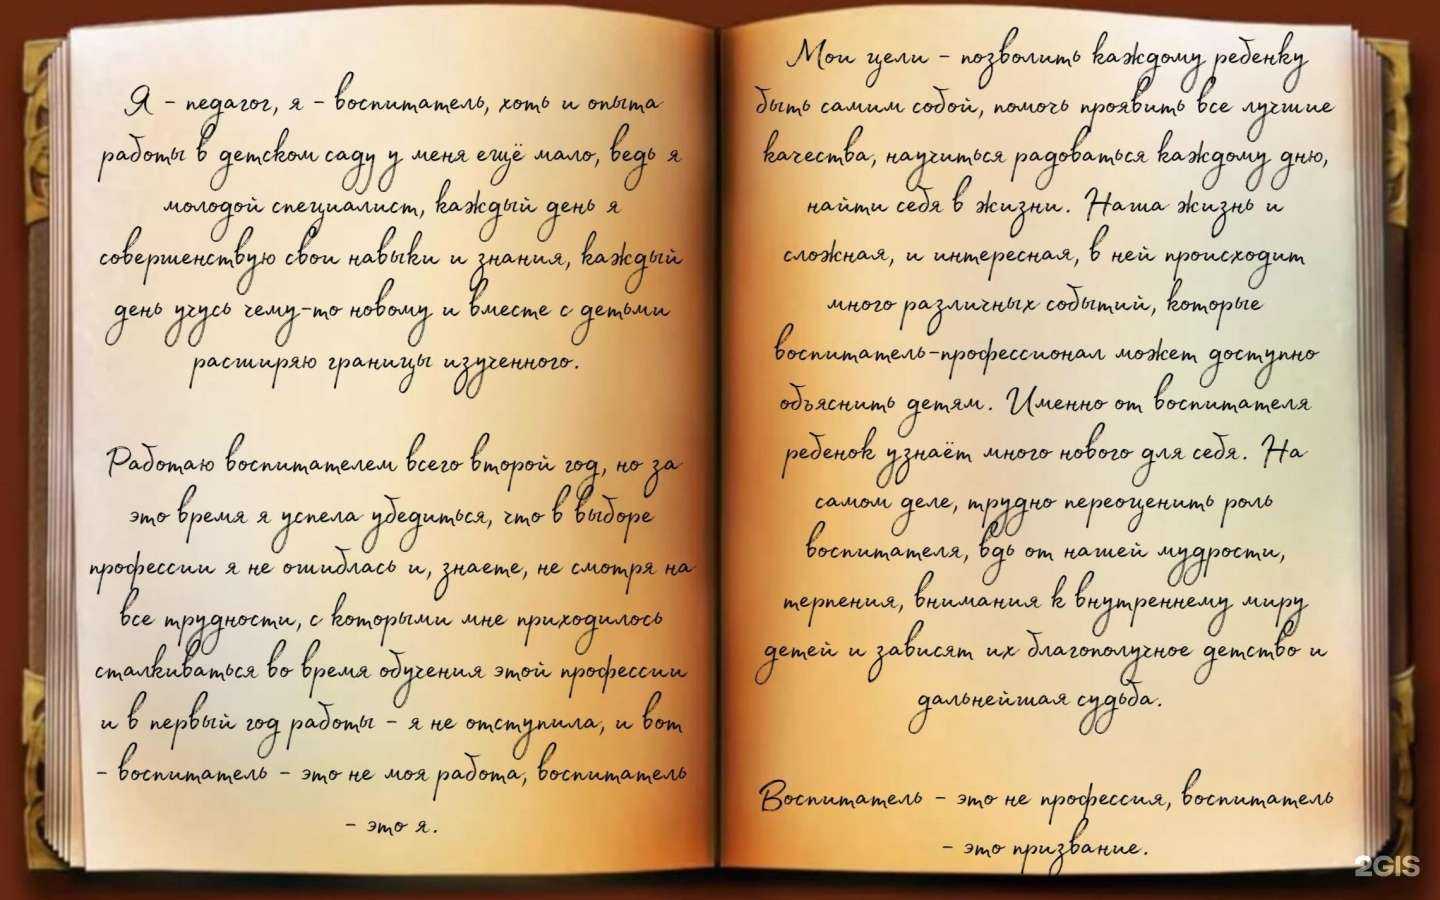 Я - педагог, я - воспитатель, хоть и опыта
работы в детском саду у меня ещё мало, ведь я
молодой специалист, каждый день я
совершенствую свои навыки и знания, каждый
день учусь чему-то новому и вместе с детьми
расширяю границы изученного.
Работаю воспитателем всего второй год, но за
это время я успела убедиться, что в выборе
профессии я не ошиблась и, знаете, не смотря на
все трудности, с которыми мне приходилось
сталкиваться во время обучения этой профессии
и в первый год работы - я не отступила, и вот
- воспитатель - это не моя работа, воспитатель
- это я.
Мои цели - позволить каждому ребенку
быть самим собой, помочь проявить все лучшие
качества, научиться радоваться каждому дню,
найти себя в жизни. Наша жизнь и
сложная, и интересная, в ней происходит
много различных событий, которые
воспитатель-профессионал может доступно
объяснить детям. Именно от воспитателя
ребенок узнаёт много нового для себя. На
самом деле, трудно переоценить роль
воспитателя, вдь от нашей мудрости,
терпения, внимания к внутреннему миру
детей и зависят их благополучное детство и
дальнейшая судьба.
Воспитатель - это не профессия, воспитатель
- это призвание.
2GIS